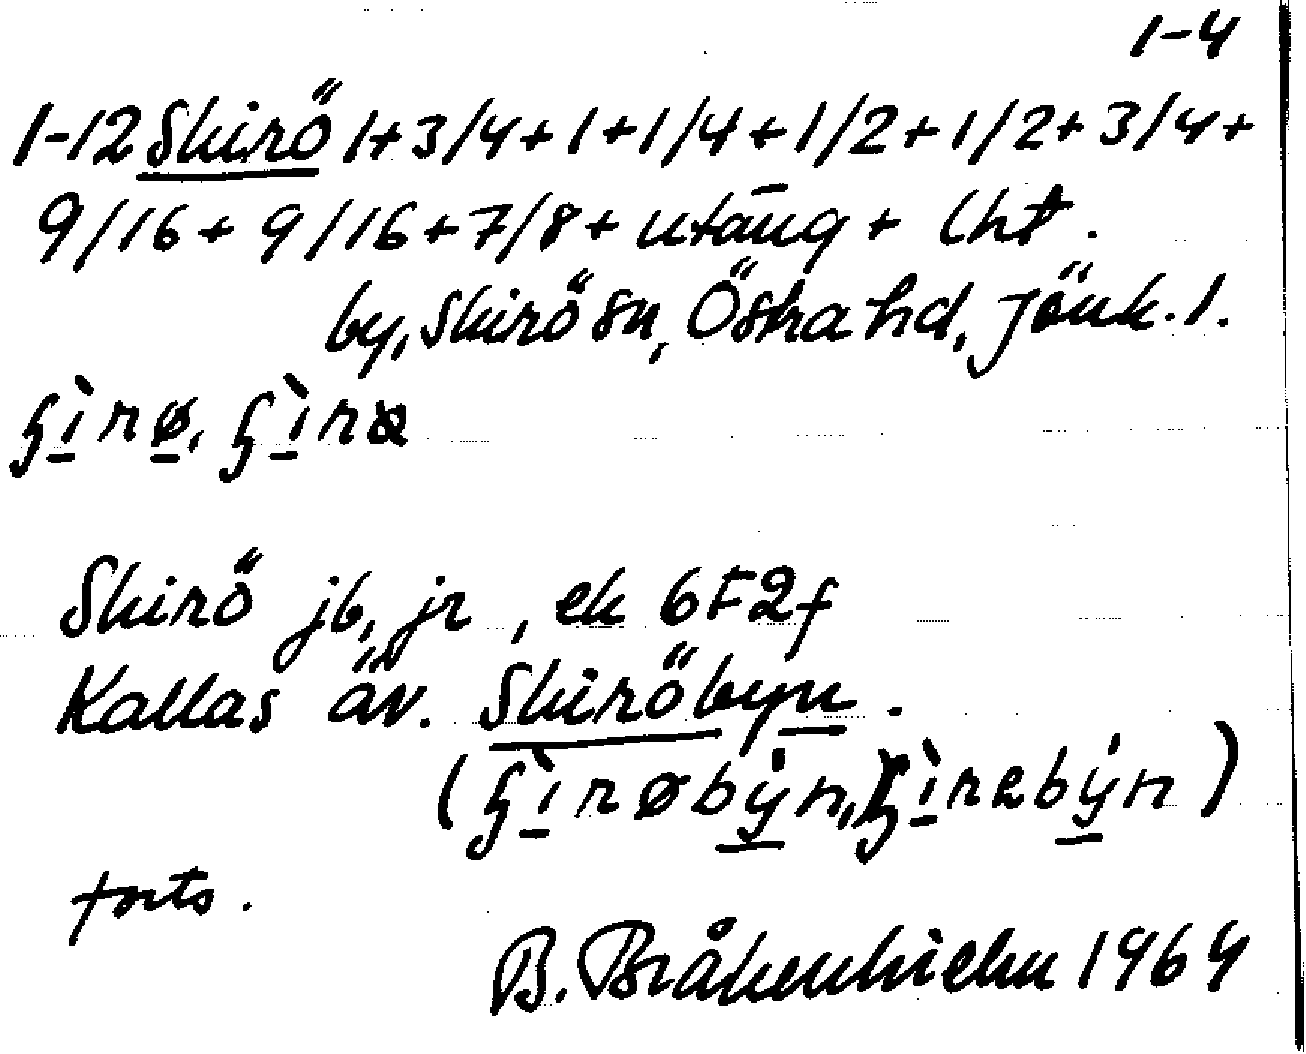 1-4
1-12 Skirö 1+3/4+1+1/4+1/2+1/2+3/4+
9/16+9/16+7/8+utäng+lht.
by, Skirö sn, Östra hd, Jönk. l.
Skirö jb, jr, ek 6F2f
Kallas äv. Skiröbyn.
forts.
B. Bråkenhielm 1969